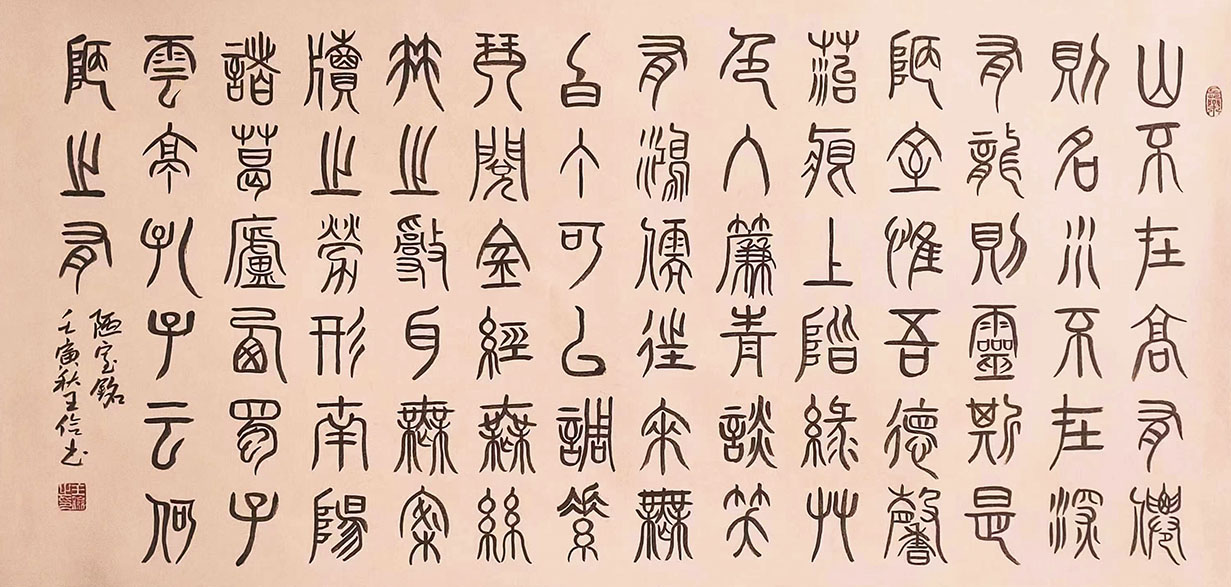 山不在高有僊
則名水不在深
有龍則靈斯是
陋室惟吾德馨
苔痕上階綠艸
色入簾青談笑
有鴻儒往來無
白丁可以調素
琴閱金經無絲
竹之亂耳無案
牘之勞形南陽
諸葛廬西蜀子
雲亭孔子云何
陋之有
陋室銘
壬寅秋王书